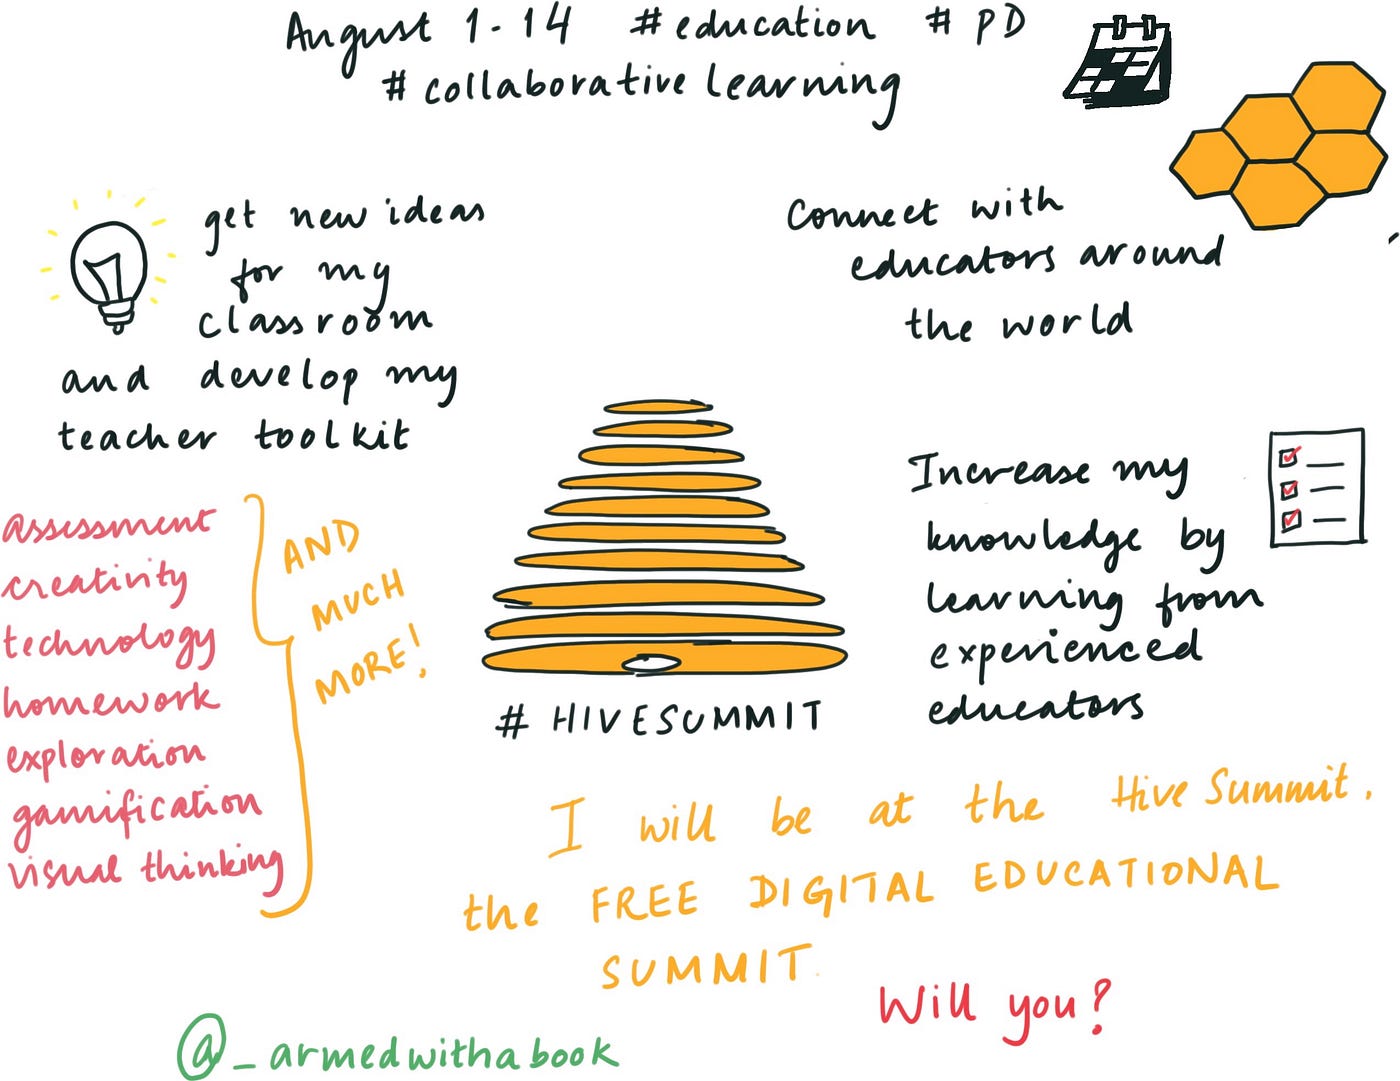 August 1-14 #education #PD
#collaborative learning
get new ideas
for my
classroom
and develop my
teacher toolkit
Connect with
educators around
the world
assessment
creativity
technology
homework
exploration
gamification
visual thinking
AND
MUCH
MORE!
# HIVESUMMIT
Increase my
knowledge by
learning from
experienced
educators
I will be at the Hive Summit.
the FREE DIGITAL EDUCATIONAL
SUMMIT.
Will you?
@_armedwithabook